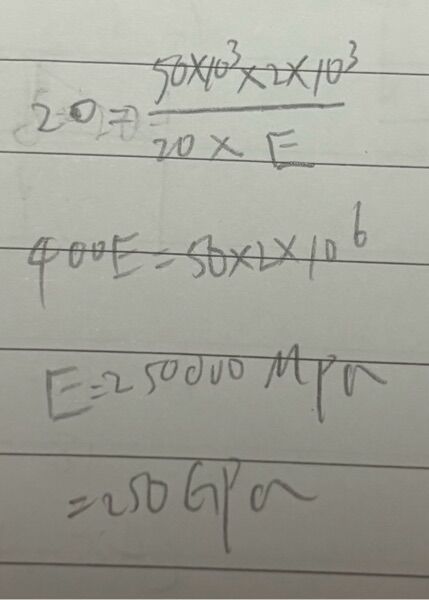 20 = 50×10³×2×10³ / 20 × E
400E = 50×2×10⁶
E = 250000 MPa
= 250 GPa